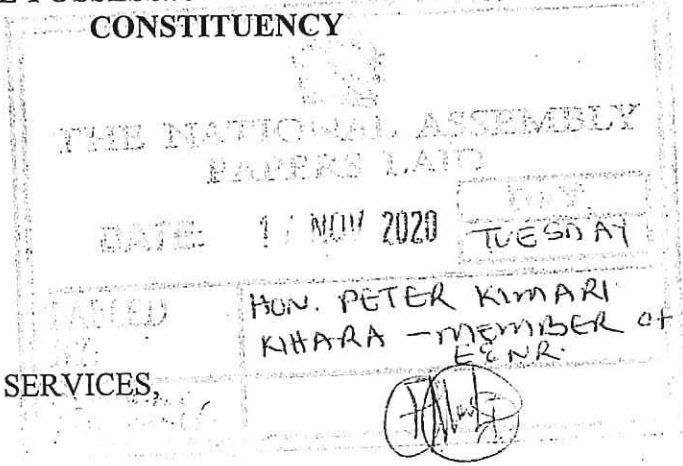 CONSTITUENCY
THE NATIONAL ASSEMBLY
PAPERS LAID
DAY
DATE: NOV 2020 TUESDAY
TABLED HON. PETER KIMARI
BY: KIHARA - MEMBER of
E&NR.
SERVICES,